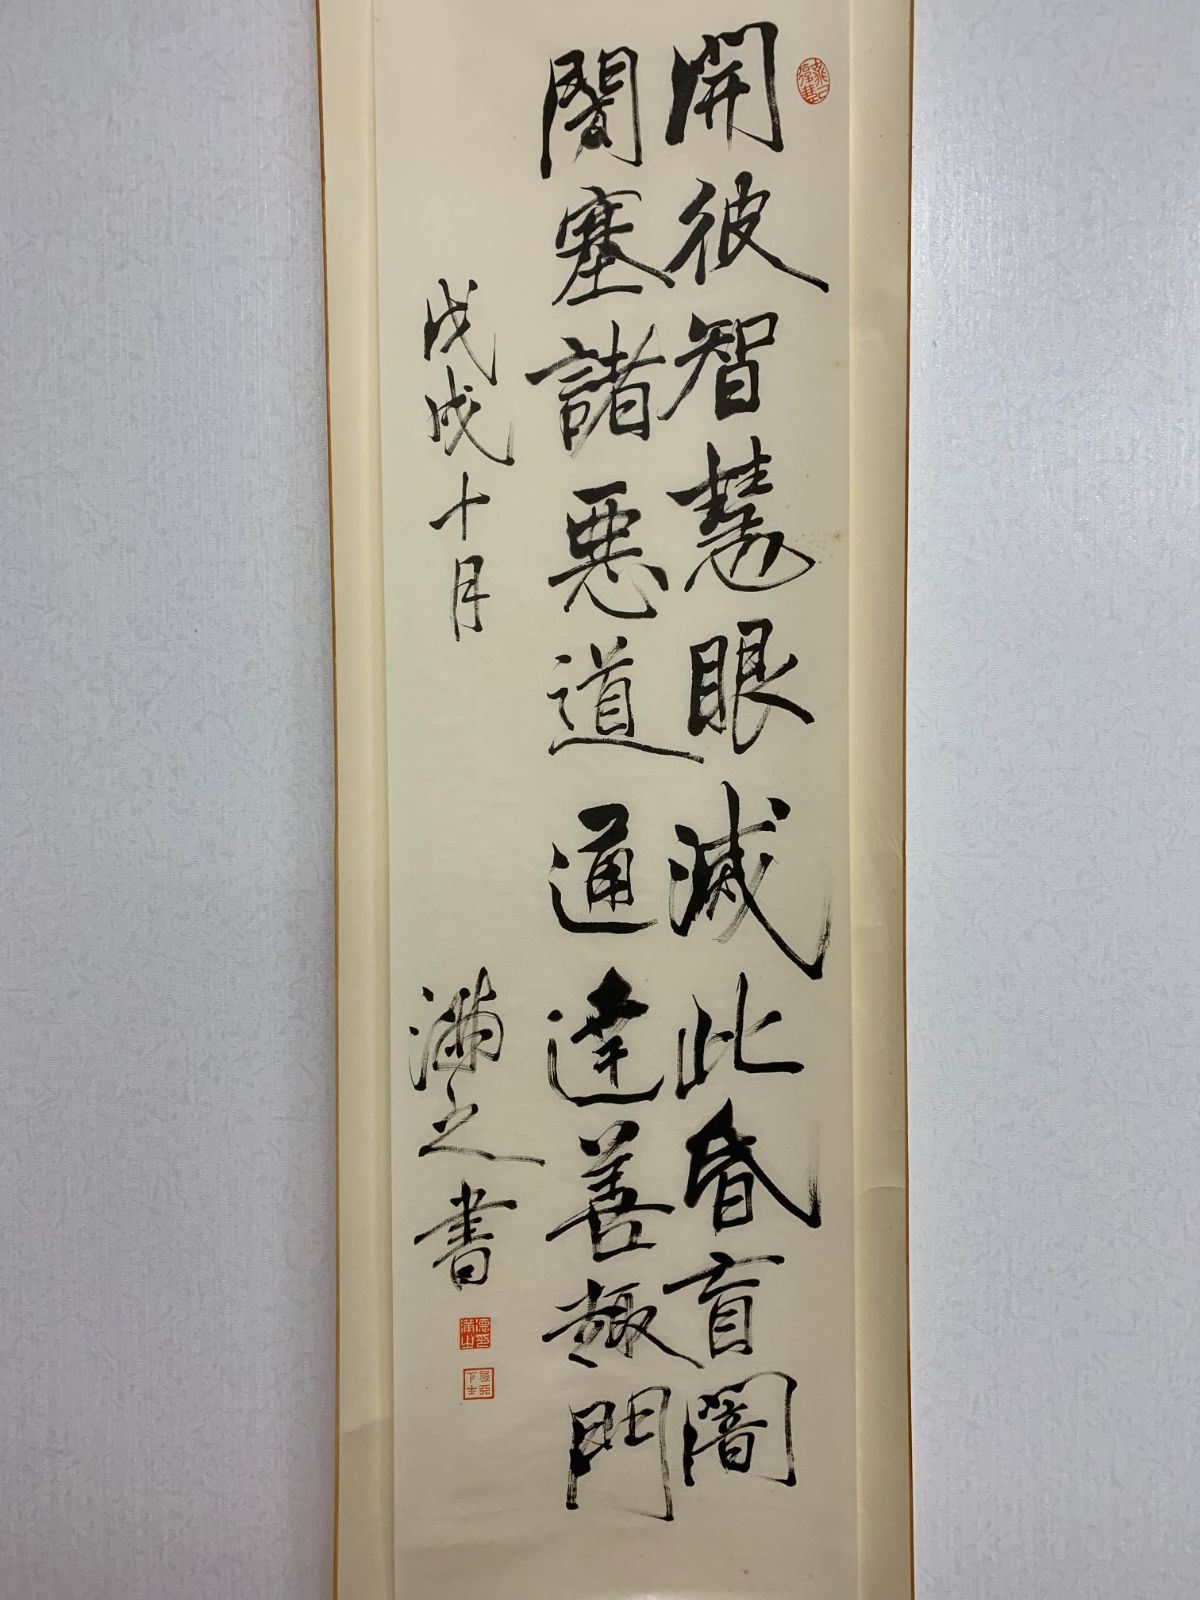 開彼智慧眼滅此昏盲闇
閉塞諸惡道通達善趣門
戊戌十月
滿之書